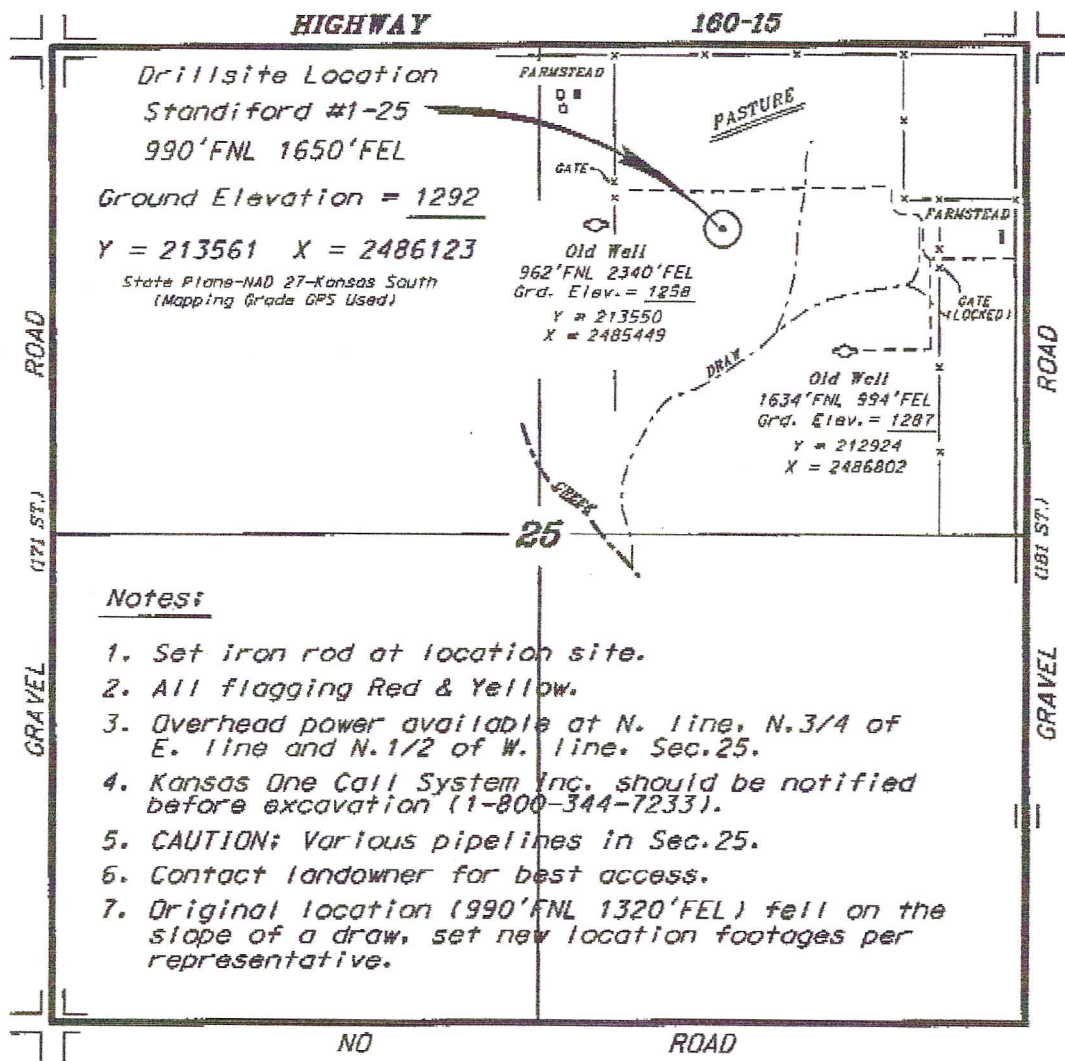 HIGHWAY 160-15
Drillsite Location
Standiford #1-25
990'FNL 1650'FEL
Ground Elevation = 1292
Y = 213561 X = 2486123
State Plane-NAD 27-Kansas South
(Mapping Grade GPS Used)
FARMSTEAD
PASTURE
GATE
Old Well
962'FNL 2340'FEL
Grd. Elev.= 1258
Y = 213550
X = 2485449
FARMSTEAD
GATE
(LOCKED)
DRAW
Old Well
1634'FNL 994'FEL
Grd. Elev.= 1287
Y = 212924
X = 2486802
CREEK
25
ROAD
(171 ST.)
GRAVEL
ROAD
(181 ST.)
GRAVEL
Notes:
1. Set iron rod at location site.
2. All flagging Red & Yellow.
3. Overhead power available at N. line, N.3/4 of
E. line and N.1/2 of W. line, Sec.25.
4. Kansas One Call System Inc. should be notified
before excavation (1-800-344-7233).
5. CAUTION: Various pipelines in Sec.25.
6. Contact landowner for best access.
7. Original location (990'FNL 1320'FEL) fell on the
slope of a draw, set new location footages per
representative.
NO ROAD